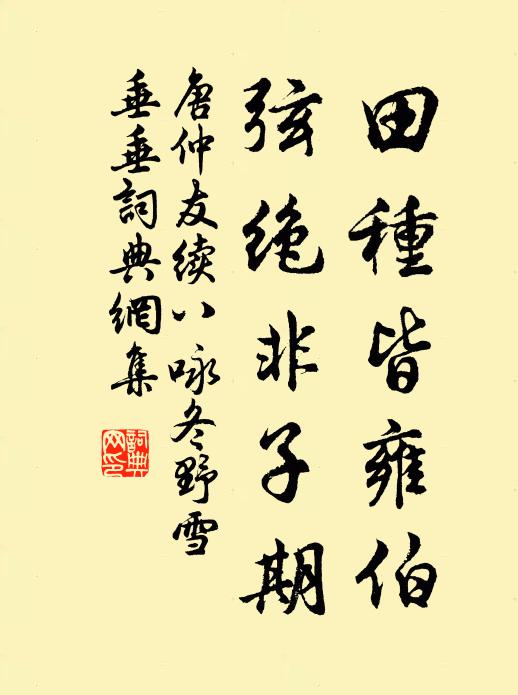 田種皆雍伯
弦絶非子期
唐仲友续八咏冬野雪
垂垂詞典網集
詞典
网印